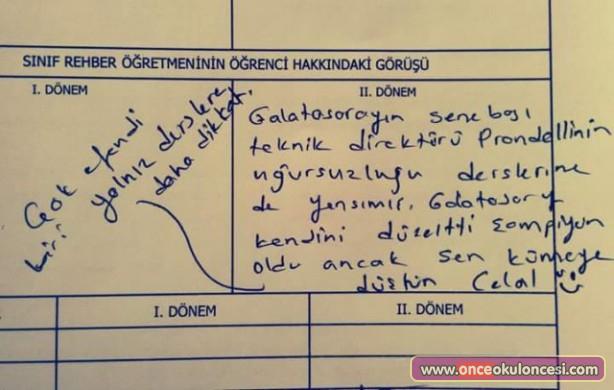 SINIF REHBER ÖĞRETMENİNİN ÖĞRENCİ HAKKINDAKİ GÖRÜŞÜ
I. DÖNEM
Çok efendi
biri
yalnız derslere
daha dikkat.
II. DÖNEM
Galatasarayın sene başı
teknik direktörü Prandellinin
uğursuzluğu derslerine
de yansımış. Galatasaray
kendini düzeltti şampiyon
oldu ancak sen kümeye
düştün Celal
I. DÖNEM
II. DÖNEM
www.onceokuloncesi.com